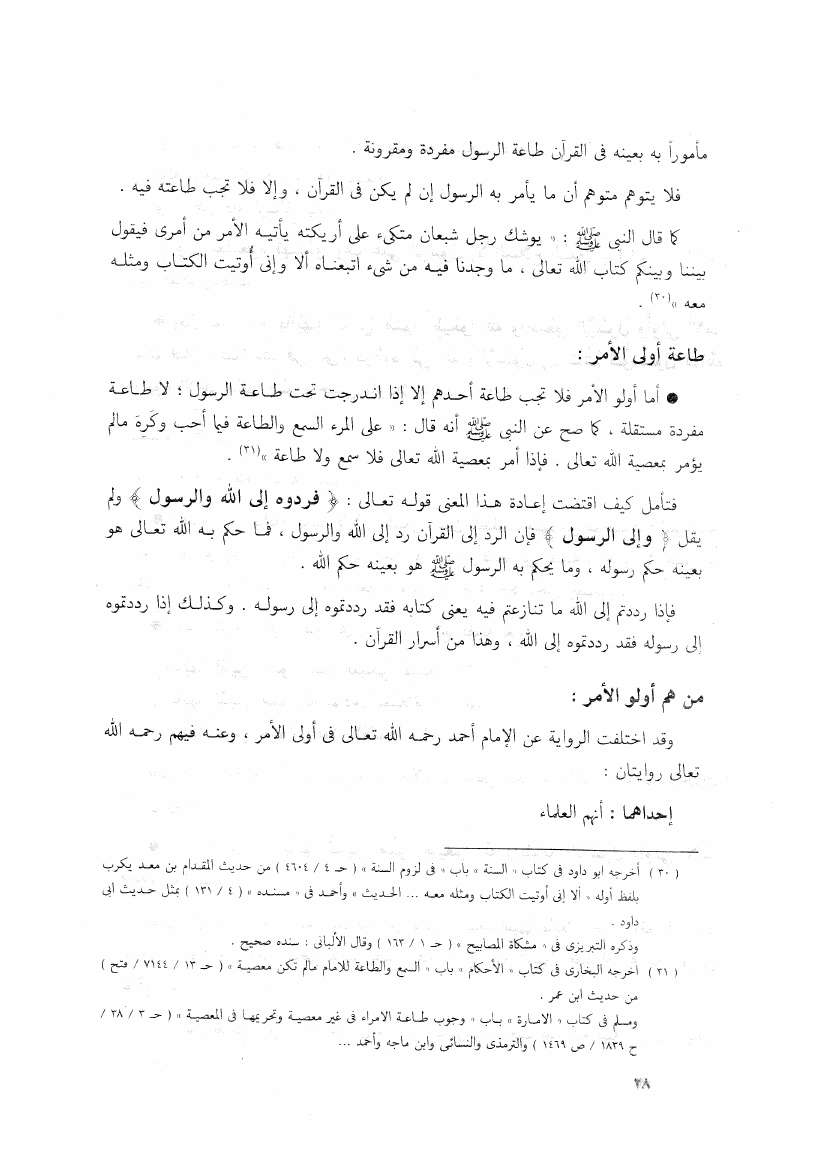 مأموراً به بعينه فى القرآن طاعة الرسول مفردة ومقرونة .
فلا يتوهم متوهم أن ما يأمر به الرسول إن لم يكن فى القرآن ، وإلا فلا تجب طاعته فيه .
كما قال النبى ﷺ : « يوشك رجل شبعان متكىء على أريكته يأتيـه الأمر من أمرى فيقول
بيننا وبينكم كتاب الله تعالى ، ما وجدنا فيـه من شىء اتبعنـاه ألا وإنى أُوتيت الكتـاب ومثلـه
معه »(٣٠) .
طاعة أولى الأمر :
● أما أولو الأمر فلا تجب طاعة أحـدهم إلا إذا انـدرجت تحت طـاعـة الرسول ؛ لا طـاعـة
مفردة مستقلة ، كما صح عن النبى ﷺ أنه قال : « على المرء السمع والطاعة فيما أحب وكَرِهَ مالم
يؤمر بمعصية الله تعالى . فإذا أمر بمعصية الله تعالى فلا سمع ولا طاعة »(٣١) .
فتأمل كيف اقتضت إعـادة هـذا المعنى قولـه تعـالى : ﴿ فردوه إلى الله والرسول ﴾ ولم
يقل ﴿ وإلى الرسول ﴾ فإن الرد إلى القرآن رد إلى الله والرسول ، فمـا حكم بـه الله تعـالى هو
بعينه حكم رسوله ، وما يحكم به الرسول ﷺ هو بعينه حكم الله .
فإذا رددتم إلى الله ما تنازعتم فيه يعنى كتابه فقد رددتموه إلى رسولـه . وكـذلـك إذا رددتموه
إلى رسوله فقد رددتموه إلى الله ، وهذا من أسرار القرآن .
من هم أولو الأمر :
وقد اختلفت الرواية عن الإمام أحمد رحمـه الله تعـالى فى أولى الأمر ، وعنـه فيهم رحمـه الله
تعالى روايتان :
إحداهما : أنهم العلماء
( ٣٠ ) أخرجه ابو داود فى كتاب « السنة » باب « فى لزوم السنة » ( حـ ٤ / ٤٦٠٤ ) من حديث المقدام بن معـد يكرب
بلفظ أوله « ألا إنى أوتيت الكتاب ومثله معه ... الحـديث » وأحمـد فى « مسنـده » ( ٤ / ١٣١ ) بمثل حـديث ابى
داود .
وذكره التبريزى فى « مشكاة المصابيح » ( حـ ١ / ١٦٣ ) وقال الألبانى : سنده صحيح .
( ٣١ ) اخرجه البخارى فى كتاب « الأحكام » باب « السمع والطاعة للامام مالم تكن معصيـة » ( حـ ١٣ / ٧١٤٤ / فتح )
من حديث ابن عمر .
ومسلم فى كتاب « الامـارة » بـاب « وجوب طـاعـة الامراء فى غير معصيـة وتحريمهـا فى المعصيـة » ( حـ ٣ / ٣٨ /
ح ١٨٣٩ / ص ١٤٦٩ ) والترمذى والنسائى وابن ماجه وأحمد ...
٢٨